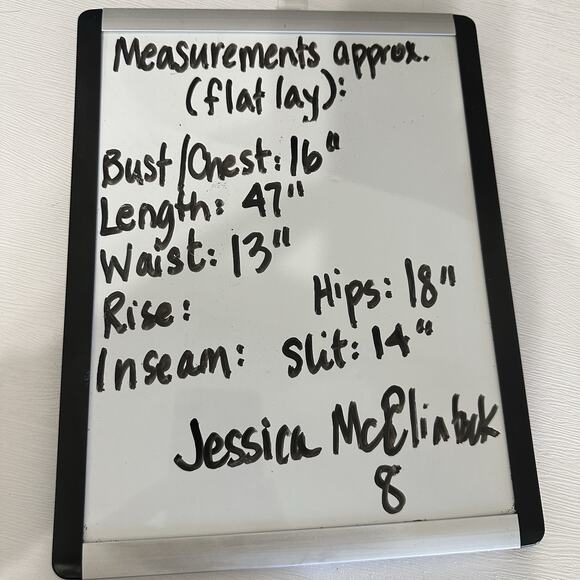 Measurements approx.
(flat lay):
Bust/Chest: 16"
Length: 47"
Waist: 13"
Rise: Hips: 18"
Inseam: Slit: 14"
Jessica McClintock
8